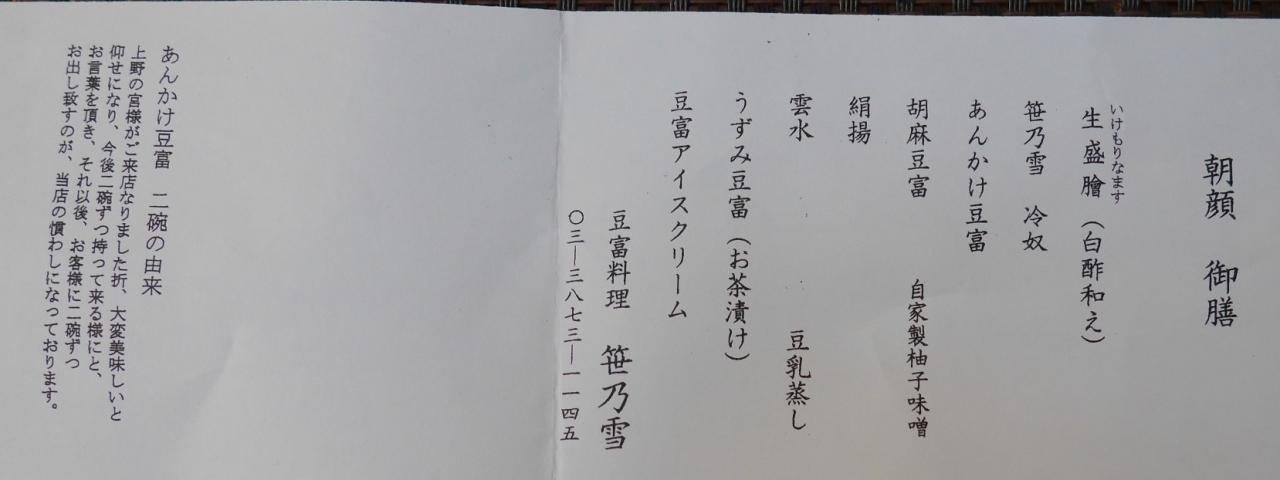 朝顔　御膳
いけもりなます
生盛膾（白酢和え）
笹乃雪　冷奴
あんかけ豆富
胡麻豆富　自家製柚子味噌
絹揚
雲水　豆乳蒸し
うずみ豆富（お茶漬け）
豆富アイスクリーム
豆富料理　笹乃雪
〇三―三八七三―一一四五
あんかけ豆富　二碗の由来
上野の宮様がご来店なりました折、大変美味しいと
仰せになり、今後二碗ずつ持って来る様にと、
お言葉を頂き、それ以後、お客様に二碗ずつ
お出し致すのが、当店の慣わしになっております。